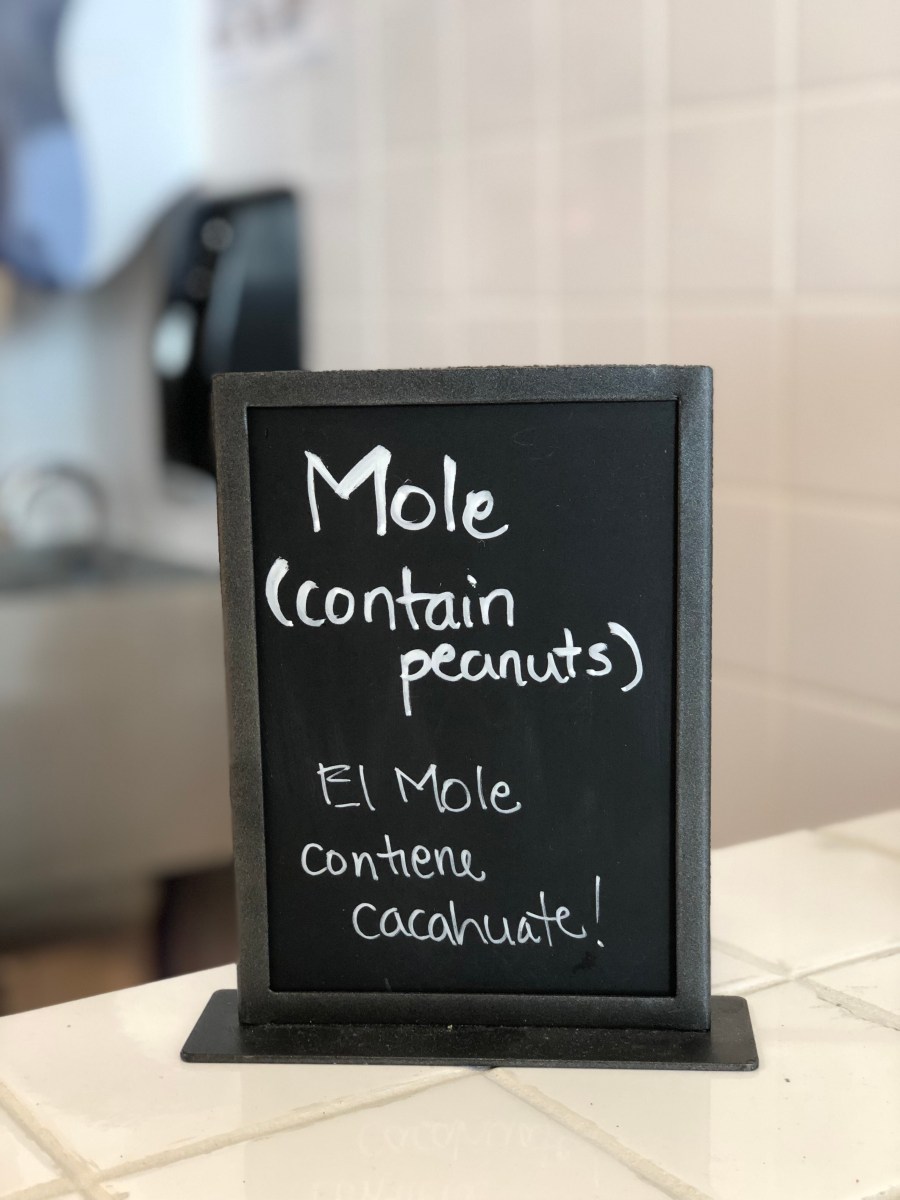 Mole
(contain
peanuts)
El Mole
contiene
cacahuate!